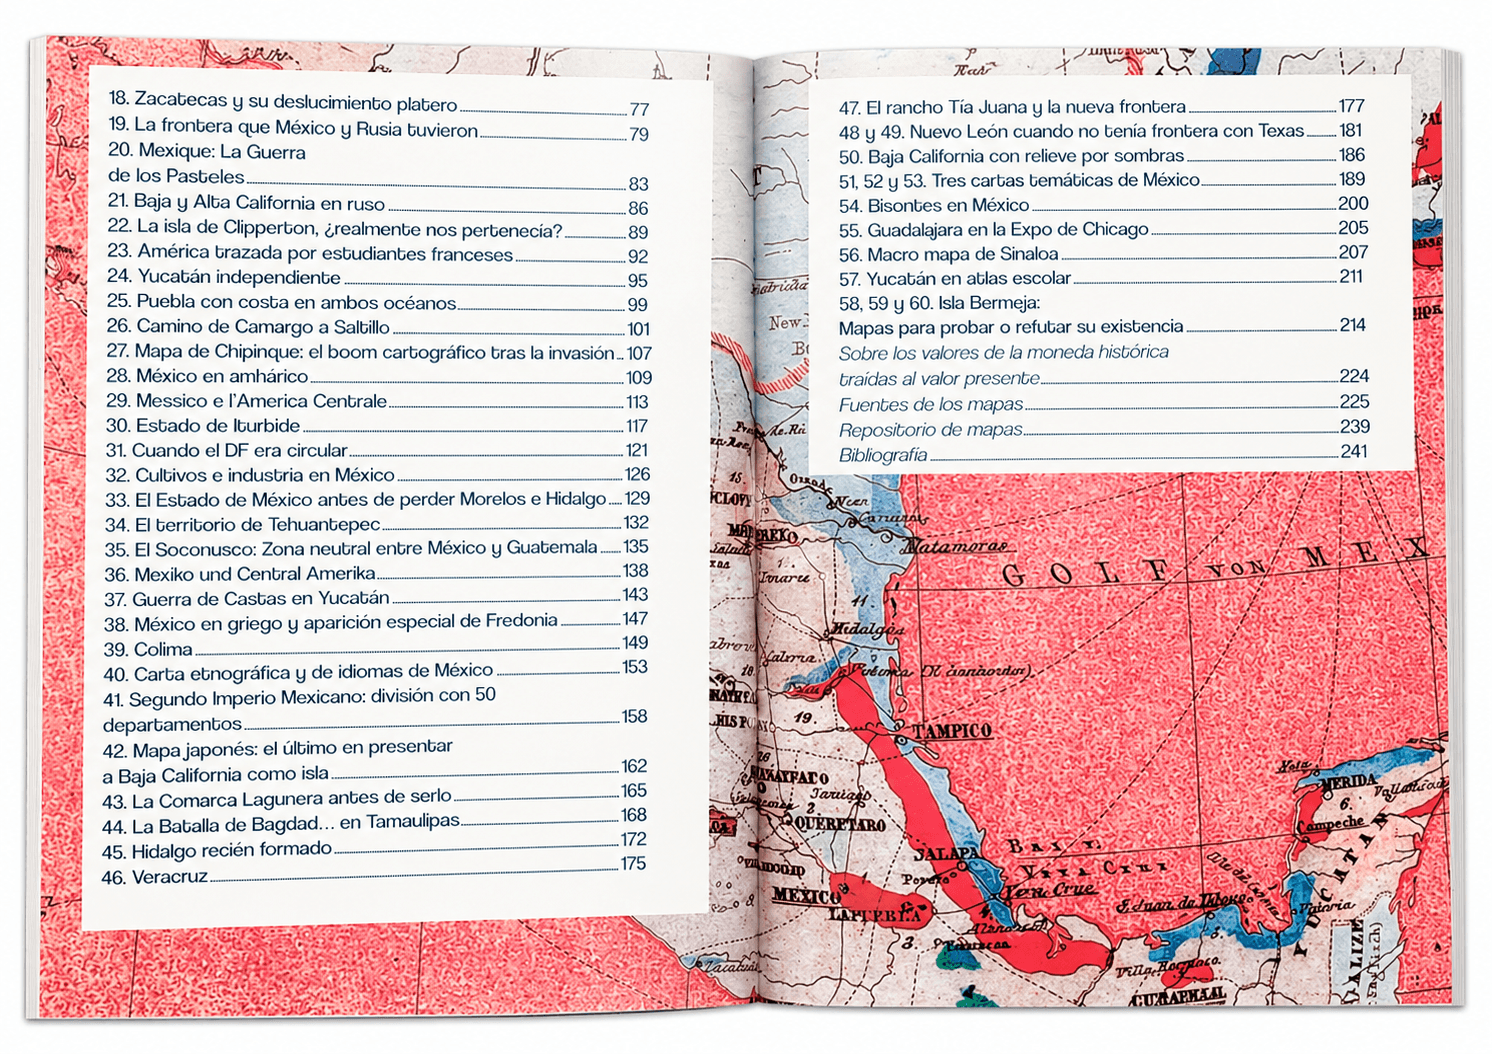 18. Zacatecas y su deslucimiento platero 77
19. La frontera que México y Rusia tuvieron 79
20. Mexique: La Guerra
de los Pasteles 83
21. Baja y Alta California en ruso 86
22. La isla de Clipperton, ¿realmente nos pertenecía? 89
23. América trazada por estudiantes franceses 92
24. Yucatán independiente 95
25. Puebla con costa en ambos océanos 99
26. Camino de Camargo a Saltillo 101
27. Mapa de Chipinque: el boom cartográfico tras la invasión 107
28. México en amhárico 109
29. Messico e l'America Centrale 113
30. Estado de Iturbide 117
31. Cuando el DF era circular 121
32. Cultivos e industria en México 126
33. El Estado de México antes de perder Morelos e Hidalgo 129
34. El territorio de Tehuantepec 132
35. El Soconusco: Zona neutral entre México y Guatemala 135
36. Mexiko und Central Amerika 138
37. Guerra de Castas en Yucatán 143
38. México en griego y aparición especial de Fredonia 147
39. Colima 149
40. Carta etnográfica y de idiomas de México 153
41. Segundo Imperio Mexicano: división con 50
departamentos 158
42. Mapa japonés: el último en presentar
a Baja California como isla 162
43. La Comarca Lagunera antes de serlo 165
44. La Batalla de Bagdad... en Tamaulipas 168
45. Hidalgo recién formado 172
46. Veracruz 175
47. El rancho Tía Juana y la nueva frontera 177
48 y 49. Nuevo León cuando no tenía frontera con Texas 181
50. Baja California con relieve por sombras 186
51, 52 y 53. Tres cartas temáticas de México 189
54. Bisontes en México 200
55. Guadalajara en la Expo de Chicago 205
56. Macro mapa de Sinaloa 207
57. Yucatán en atlas escolar 211
58, 59 y 60. Isla Bermeja:
Mapas para probar o refutar su existencia 214
Sobre los valores de la moneda histórica
traídas al valor presente 224
Fuentes de los mapas 225
Repositorio de mapas 239
Bibliografía 241
Matamoras
GOLF VON MEX
Hidalgo
TAMPICO
QUERETARO
JALAPA
MEXICO
LA PUEBLA
Vera Cruz
MERIDA
Campeche
YUCATAN
S. Juan de
Vitoria
BALIZE